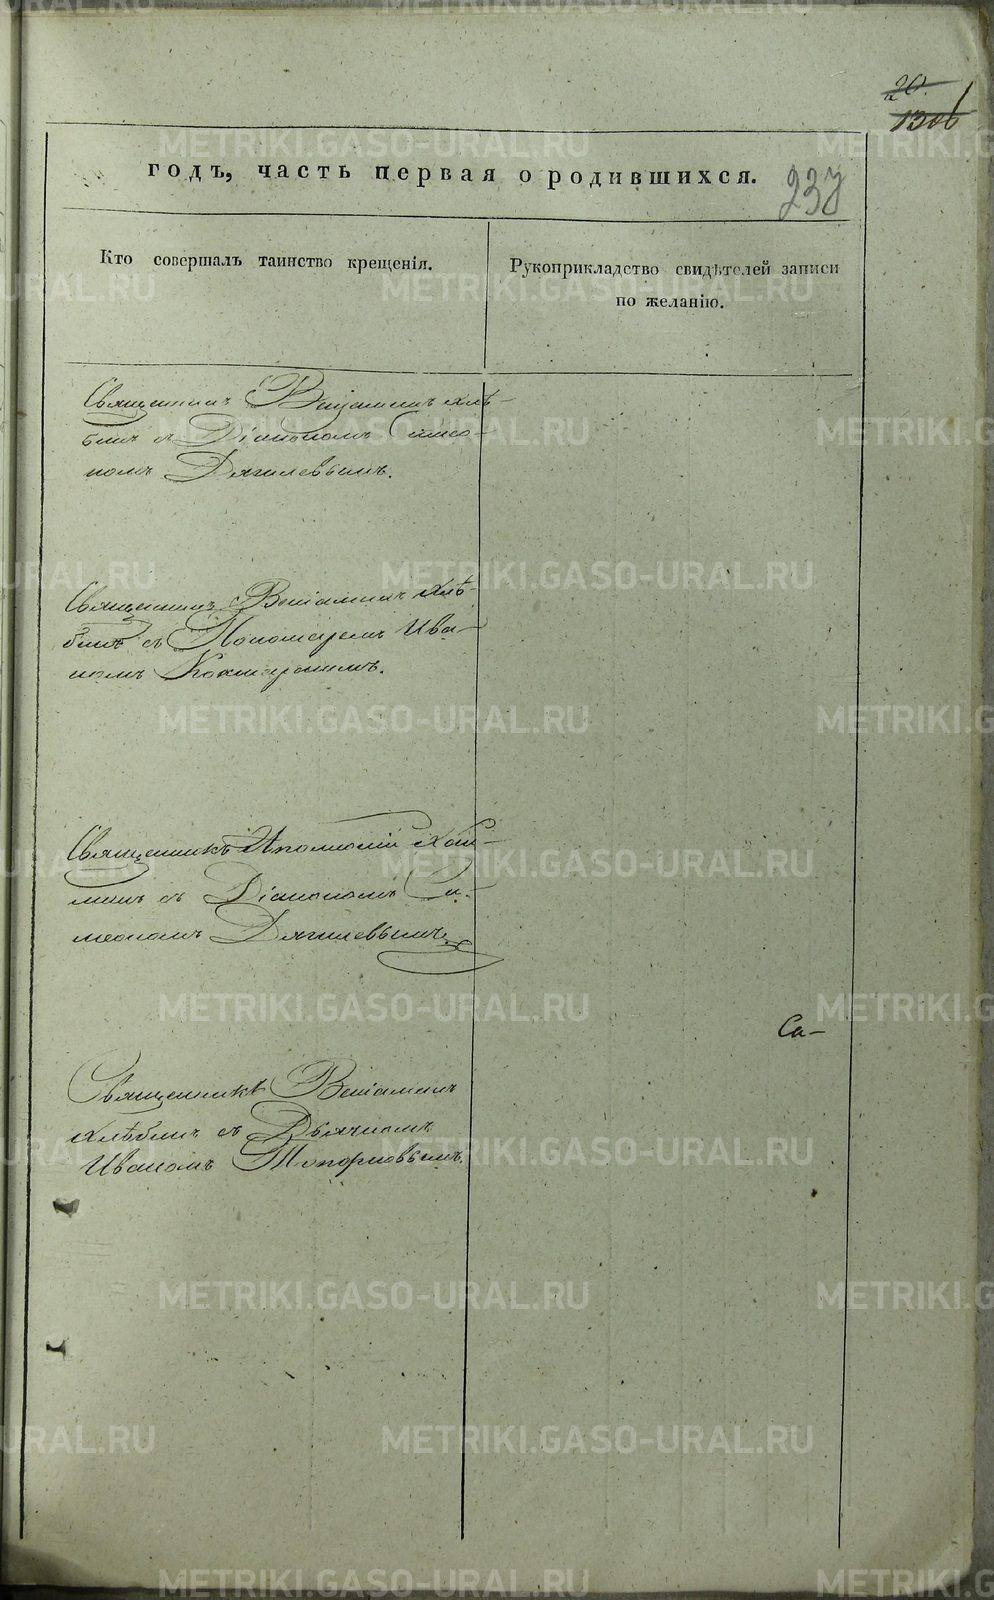 20.
1306
годъ, часть первая о родившихся.
237
Кто совершалъ таинство крещенія.
Рукоприкладство свидѣтелей записи
по желанію.
Священникъ Веніаминъ Хлѣ-
бинъ съ Діакономъ Симео-
номъ Дягилевымъ.
Священникъ Веніаминъ Хлѣ-
бинъ съ Пономаремъ Ива-
номъ
Священникъ
съ Діакономъ Си-
меономъ Дягилевымъ
Са-
Священникъ Веніаминъ
Хлѣбинъ съ Дьячкомъ
Иваномъ Топорковымъ.
METRIKI.GASO-URAL.RU